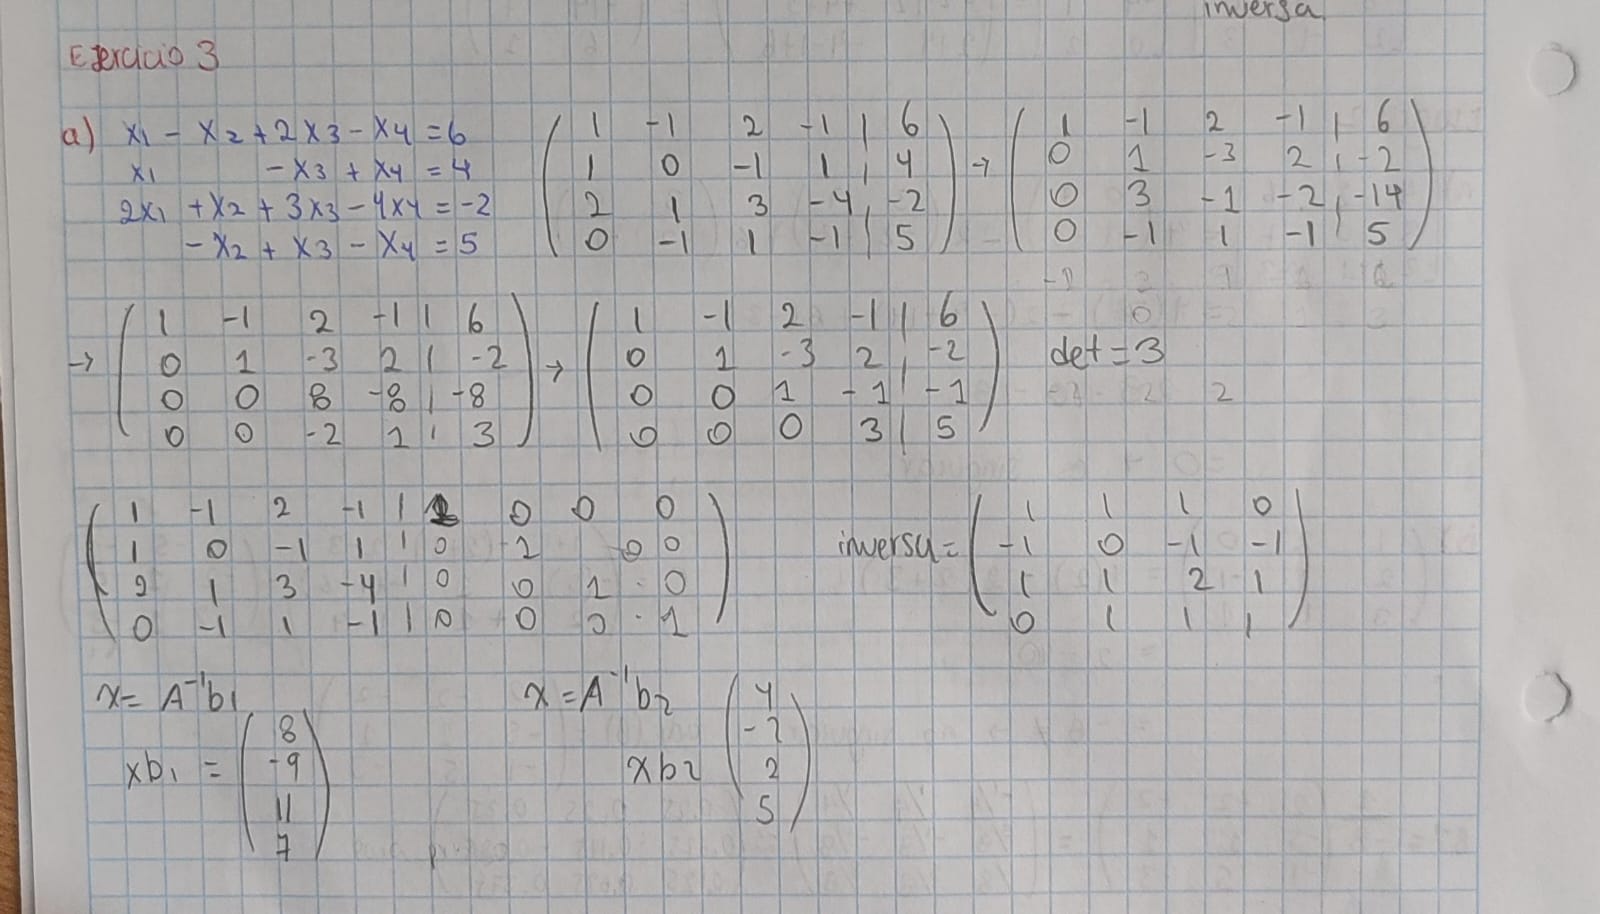 inversa
Ejercicio 3
a) x1 - x2 + 2x3 - x4 = 6
x1 - x3 + x4 = 4
2x1 + x2 + 3x3 - 4x4 = -2
- x2 + x3 - x4 = 5
( 1 -1 2 -1 | 6 )
( 1 0 -1 1 | 4 )
( 2 1 3 -4 | -2 )
( 0 -1 1 -1 | 5 )
→ ( 1 -1 2 -1 | 6 )
( 0 1 -3 2 | -2 )
( 0 3 -1 -2 | -14 )
( 0 -1 1 -1 | 5 )
→ ( 1 -1 2 -1 | 6 )
( 0 1 -3 2 | -2 )
( 0 0 8 -8 | -8 )
( 0 0 -2 1 | 3 )
→ ( 1 -1 2 -1 | 6 )
( 0 1 -3 2 | -2 )
( 0 0 1 -1 | -1 )
( 0 0 0 3 | 5 )
det = 3
( 1 -1 2 -1 | 1 0 0 0 )
( 1 0 -1 1 | 0 1 0 0 )
( 2 1 3 -4 | 0 0 1 0 )
( 0 -1 1 -1 | 0 0 0 1 )
inversa = ( 1 1 1 0 )
( -1 0 -1 -1 )
( 1 1 2 1 )
( 0 1 1 1 )
x = A⁻¹b1
xb1 = ( 8 )
( -9 )
( 11 )
( 7 )
x = A⁻¹b2
xb2 ( 4 )
( -2 )
( 2 )
( 5 )